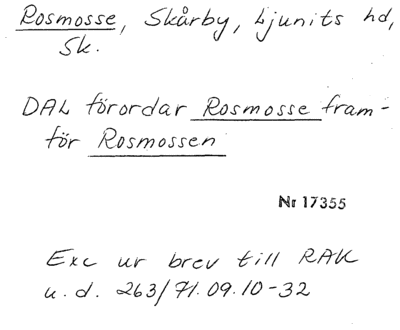 Rosmosse, Skårby, Ljunits hd,
Sk.
DAL förordar Rosmosse fram-
för Rosmossen
Nr 17355
Exc ur brev till RAK
u.d. 263/71.09.10-32